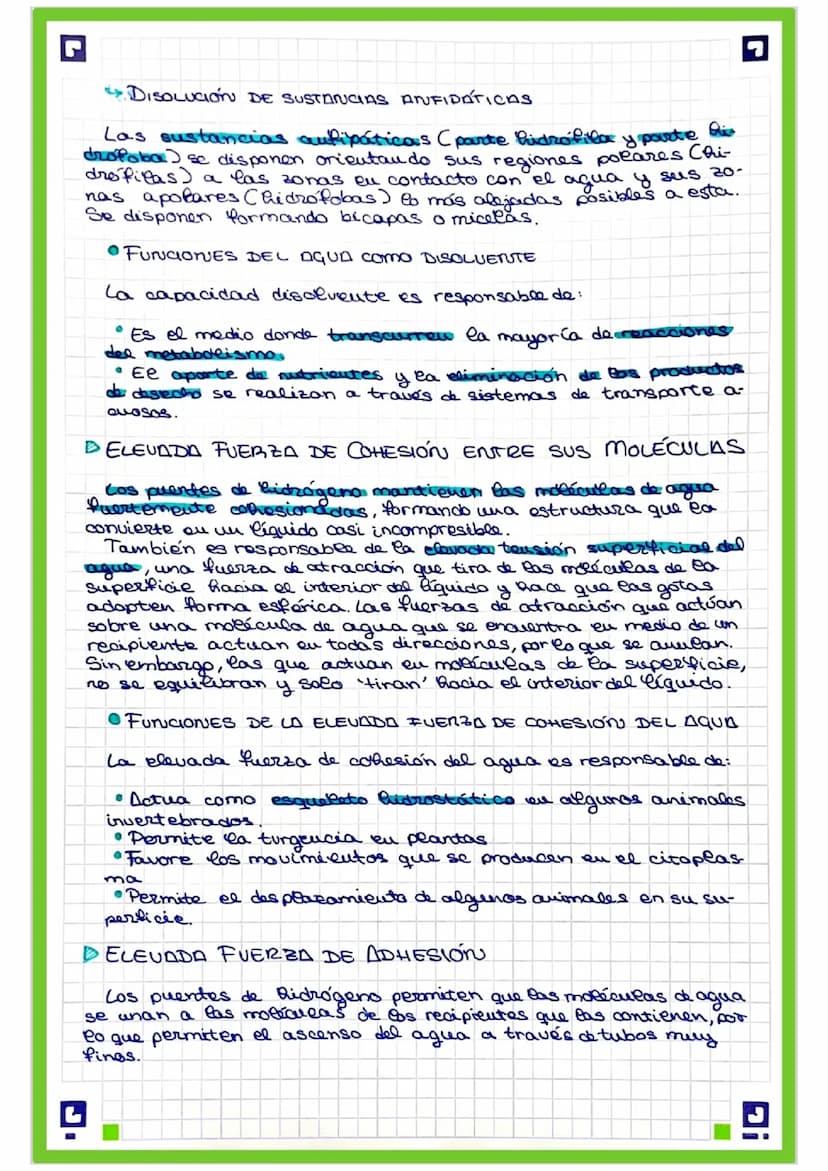 ↳ DISOLUCIÓN DE SUSTANCIAS ANFIPÁTICAS
Las sustancias anfipáticas (parte hidrófila y parte hi-
drófoba) se disponen orientando sus regiones polares (hi-
drófilas) a las zonas en contacto con el agua y sus zo-
nas apolares (hidrófobas) lo más alejadas posibles a esta.
Se disponen formando bicapas o micelas.
• FUNCIONES DEL AGUA COMO DISOLVENTE
La capacidad disolvente es responsable de:
• Es el medio donde transcurren la mayoría de reacciones
del metabolismo.
• El aporte de nutrientes y la eliminación de los productos
de desecho se realizan a través de sistemas de transporte a-
cuosos.
▷ ELEVADA FUERZA DE COHESIÓN ENTRE SUS MOLÉCULAS
Los puentes de hidrógeno mantienen las moléculas de agua
fuertemente cohesionadas, formando una estructura que la
convierte en un líquido casi incompresible.
También es responsable de la elevada tensión superficial del
agua, una fuerza de atracción que tira de las moléculas de la
superficie hacia el interior del líquido y hace que las gotas
adopten forma esférica. Las fuerzas de atracción que actúan
sobre una molécula de agua que se encuentra en medio de un
recipiente actuan en todas direcciones, por lo que se anulan.
Sin embargo, las que actuan en moléculas de la superficie,
no se equilibran y solo 'tiran' hacia el interior del líquido.
• FUNCIONES DE LA ELEVADA FUERZA DE COHESIÓN DEL AGUA
La elevada fuerza de cohesión del agua es responsable de:
• Actua como esqueleto hidrostático en algunos animales
invertebrados.
• Permite la turgencia en plantas
• Favore los movimientos que se producen en el citoplas-
ma
• Permite el desplazamiento de algunos animales en su su-
perficie.
▷ ELEVADA FUERZA DE ADHESIÓN
Los puentes de hidrógeno permiten que las moléculas de agua
se unan a las moléculas de los recipientes que las contienen, por
lo que permiten el ascenso del agua a través de tubos muy
finos.